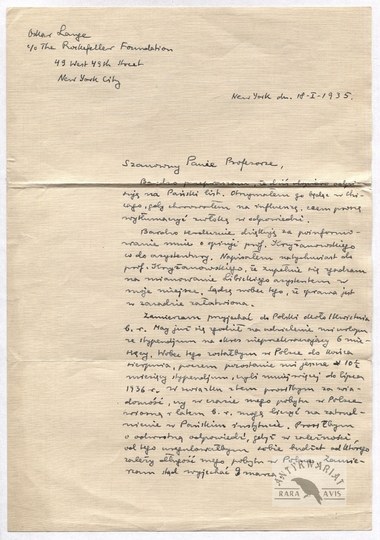 Oskar Lange
c/o The Rockefeller Foundation
49 West 49th Street
New York City
New York dn. 18-I-1935.
Szanowny Panie Profesorze,
Bardzo przepraszam, że dziś dopiero odpi-
suję na Pański list. Otrzymałem go będąc w Chi-
cago, gdy chorowałem na influenzę, czem proszę
wytłumaczyć zwłokę w odpowiedzi.
Bardzo serdecznie dziękuję za poinformo-
wanie mnie o opinji prof. Krzyżanowskiego
co do asystentury. Napisałem natychmiast do
prof. Krzyżanowskiego, iż zupełnie się zgadzam
na mianowanie asystentem w
moje miejsce, sądzę wobec tego, iż sprawa jest
w zasadzie załatwiona.
Zamierzam przyjechać do Polski około 1 kwietnia
b. r. Mają się zgodzić na udzielenie mi urlopu
ze stypendjum na okres nieprzekraczający 6 mie-
sięcy. Wobec tego zostałbym w Polsce do końca
sierpnia, poczem pozostanie mi jeszcze 10½
miesięcy stypendjum, czyli mniej więcej do lipca
1936 r. W związku z tem prosiłbym za wia-
domość, czy w czasie mego pobytu w Polsce
wiosną i latem b. r. mogę liczyć na zatrud-
nienie w Pańskim Instytucie. Prosiłbym
o odwrotną odpowiedź, gdyż w zależności
od tego uregulowałbym sobie budżet od którego
zależy długość mego pobytu w Polsce. Zamie-
rzam stąd wyjechać 9 marca
ANTYKWARIAT
RARA AVIS